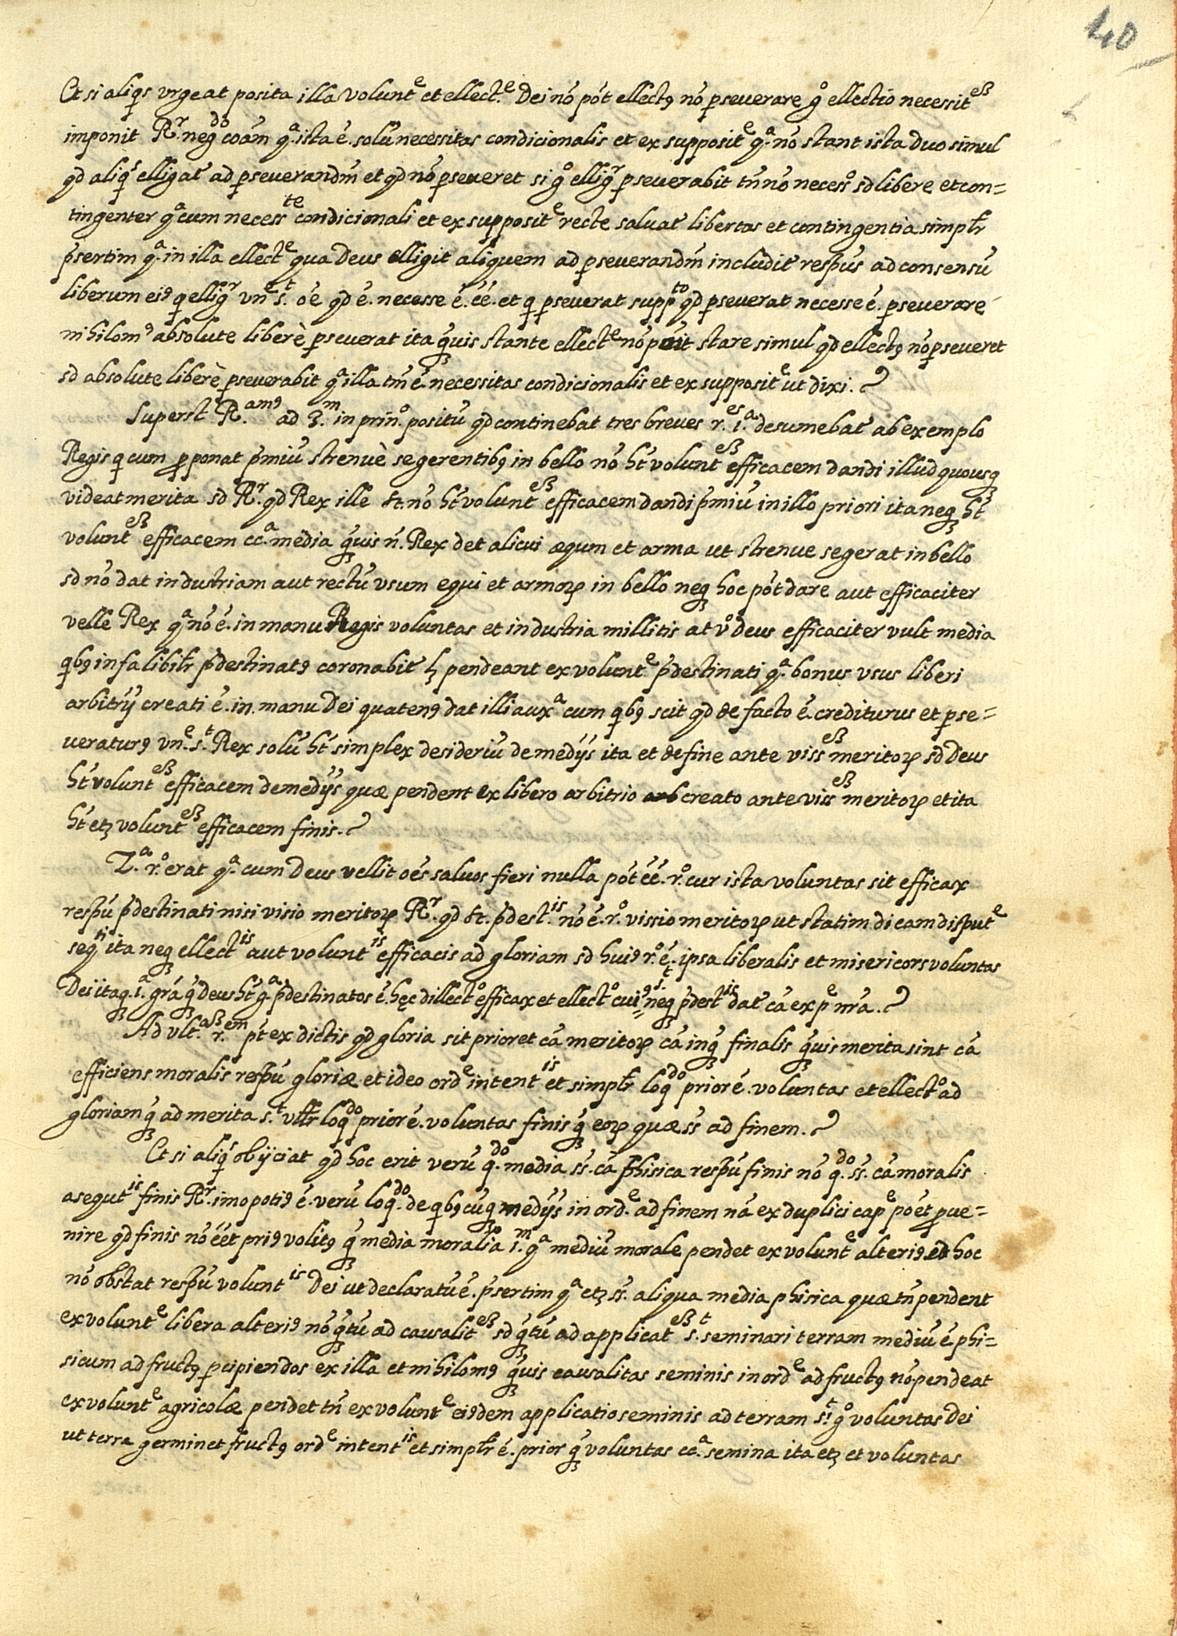 40
Et si aliqs vrgeat posita illa volunt.e et ellect.e Dei nō pót ellectꝰ nō ꝑseverare gͦ ellectio necessit.eꝫ
imponit Rr. negdo coām qa. ista ē. solū necessitas condicionalis et ex supposit.e qa. nō stant ista duo simul
qd aliqs elligat̃ ad ꝑseverandm̃ et qd nō ꝑseveret si gͦ elligr ꝑseverabit tn̄ nō necesr̃o sd libere et con=
tingenter qa cum necess.te condicionali et ex supposit.e recte salvat̃ libertas et contingentia simplr̃
p̃sertim qa. in illa ellect.e qua Deus elligit aliquem ad ꝑseverandm̃ includit̃ respūs ad consensū
liberum eiꝰ q elligr vn.e s.t oē qd ē. necesse ē. eē. et q ꝑseverat supp.to qd ꝑseverat necesse ē. ꝑseverare
nihilomꝰ absolute liberè ꝑseverat ita qꝫvis stante ellect.e nō poñit stare simul qd ellectꝰ nō ꝑseveret
sd absolute liberè ꝑseverabit qa illa tm̄ ē. necessitas condicionalis et ex supposit.e ut dixi.
Superst̃ R.amꝰ ad 3.m in prin.o positū qd continebat tres breves r.es 1.a desumebat̃ ab exemplo
Regis q cum ꝓponat p̃miū strenuè se gerentibꝰ in bello nō ht̃ volunt.eꝫ efficacem dandi illud quousqꝫ
videat merita sd Rr. qd Rex ille sc̃. nō ht̃ volunt.eꝫ efficacem dandi p̃miū in illo priori ita neqꝫ ht̃
volunt.eꝫ efficacem cc.a media qꝫvis n̄. Rex det alicui æqum et arma ut strenue se gerat in bello
sd nō dat industriam aut rectū vsum equi et armoꝝ in bello neqꝫ hoc pót dare aut efficaciter
velle Rex qa nō ē. in manu Regis voluntas et industria millitis at vͦ deus efficaciter vult media
qbꝰ infalibilr̃ p̃destinatꝰ coronabit̃ lꝫ pendeant ex volunt.e p̃destinati qa. bonus vsus liberi
arbitrÿ creati ē. in manu Dei quatenꝰ dat illi aux.a cum qbꝰ scit qd de facto ē. crediturus et pse=
veraturꝰ vn.e s.t Rex solū ht̃ simplex desideriū de medÿs ita et de fine ante viss.eꝫ meritoꝝ sd Deus
ht̃ volunt.eꝫ efficacem de medÿs quæ pendent ex libero arbitrio creato ante viss.eꝫ meritoꝝ et ita
ht̃ etꝫ volunt.eꝫ efficacem finis.
2.a r.o erat qa. cum Deus vellit oēs salvos fieri nulla pót eē. r.o cur ista voluntas sit efficax
respū p̃destinati nisi visio meritoꝝ Rr. qd sc̃. p̃dest.is nō ē. r.o vissio meritoꝝ ut statim dicam disput.e
seq.ti ita neqꝫ ellect.is aut volunt.is efficacis ad gloriam sd huiꝰ r.o ē. ipsa liberalis et misericors voluntas
Dei itaqꝫ 1.a grã qꝫ deus ht̃ qa p̃destinatos ē. hęc dillect.o efficax et ellect.o cuiꝰ neqꝫ p̃dest.is dat̃ cā ex p.e nr̃a.
Ad vlt.aꝫ r.em pt̃ ex dictis qd gloria sit prior et cā meritoꝝ cā inqꝫ finalis qꝫvis merita sint cā
efficiens moralis respū gloriæ et ideo ord.e intent.is et simplr̃ loq.do prior ē. voluntas et ellect.o ad
gloriam qꝫ ad merita s.t vlr̃ loq.do prior ē. voluntas finis qꝫ eoꝝ quæ sś ad finem.
Et si aliqs obÿciat qd hoc erit verū q.do media sś. cā phisica respū finis nō q.do sś. cā moralis
asequt.is finis Rr. imo potiꝰ ē. verū loq.do de qbꝰcūqꝫ medÿs in ord.e ad finem nā ex duplici cap.e póet ꝓve=
nire qd finis nō eēt priꝰ volitꝰ qꝫ media moralia 1.m qa mediū morale pendet ex volunt.e alteriꝰ sd hoc
nō obstat respū volunt.is Dei ut declaratū ē. p̃sertim qa etꝫ sś. aliqua media phisica quæ tn̄ pendent
ex volunt.e libera alteriꝰ nō qꝫtū ad causalit.eꝫ sd qꝫtū ad applicat.eꝫ s.t seminari terram mediū ē. phi=
sicum ad fructꝰ ꝑcipiendos ex illa et nihilomꝰ qꝫvis causalitas seminis in ord.e ad fructꝰ nō pendeat
ex volunt.e agricolæ pendet tn̄ ex volunt.e eiꝰdem applicatio seminis ad terram s.t gͦ voluntas Dei
ut terra germinet fructꝰ ord.e intent.is et simplr̃ ē. prior qꝫ voluntas cc.a semina ita etꝫ et voluntas